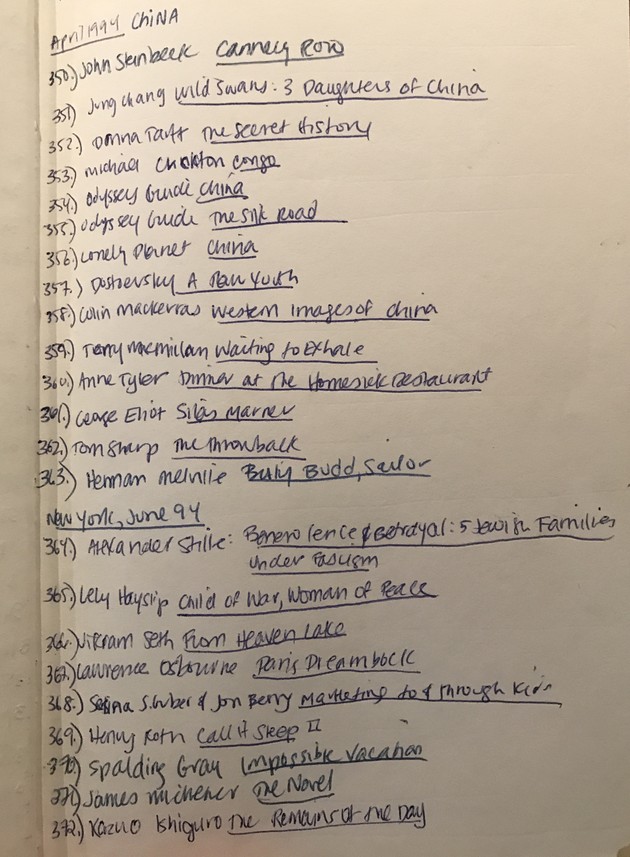 April 1994 China
350.) John Steinbeck Cannery Row
351) Jung Chang Wild Swans: 3 Daughters of China
352.) Donna Tartt The Secret History
353.) Michael Crichton Congo
354.) Odyssey Guide China
355.) Odyssey Guide The Silk Road
356.) Lonely Planet China
357.) Dostoevsky A Raw Youth
358.) Colin Mackerras Western Images of China
359.) Terry Macmillan Waiting to Exhale
360.) Anne Tyler Dinner at the Homesick Restaurant
361.) George Eliot Silas Marner
362.) Tom Sharp The Throwback
363.) Herman Melville Billy Budd, Sailor
New York, June 94
364.) Alexander Stille: Benevolence & Betrayal: 5 Jewish Families
under Fascism
365.) Lely Hayslip Child of War, Woman of Peace
366.) Vikram Seth From Heaven Lake
367.) Lawrence Osbourne Paris Dreambook
368.) Selina S. Guber & Jon Berry Marketing to & Through Kids
369.) Henry Roth Call it Sleep II
370.) Spalding Gray Impossible Vacation
371.) James Michener The Novel
372.) Kazuo Ishiguro The Remains of the Day